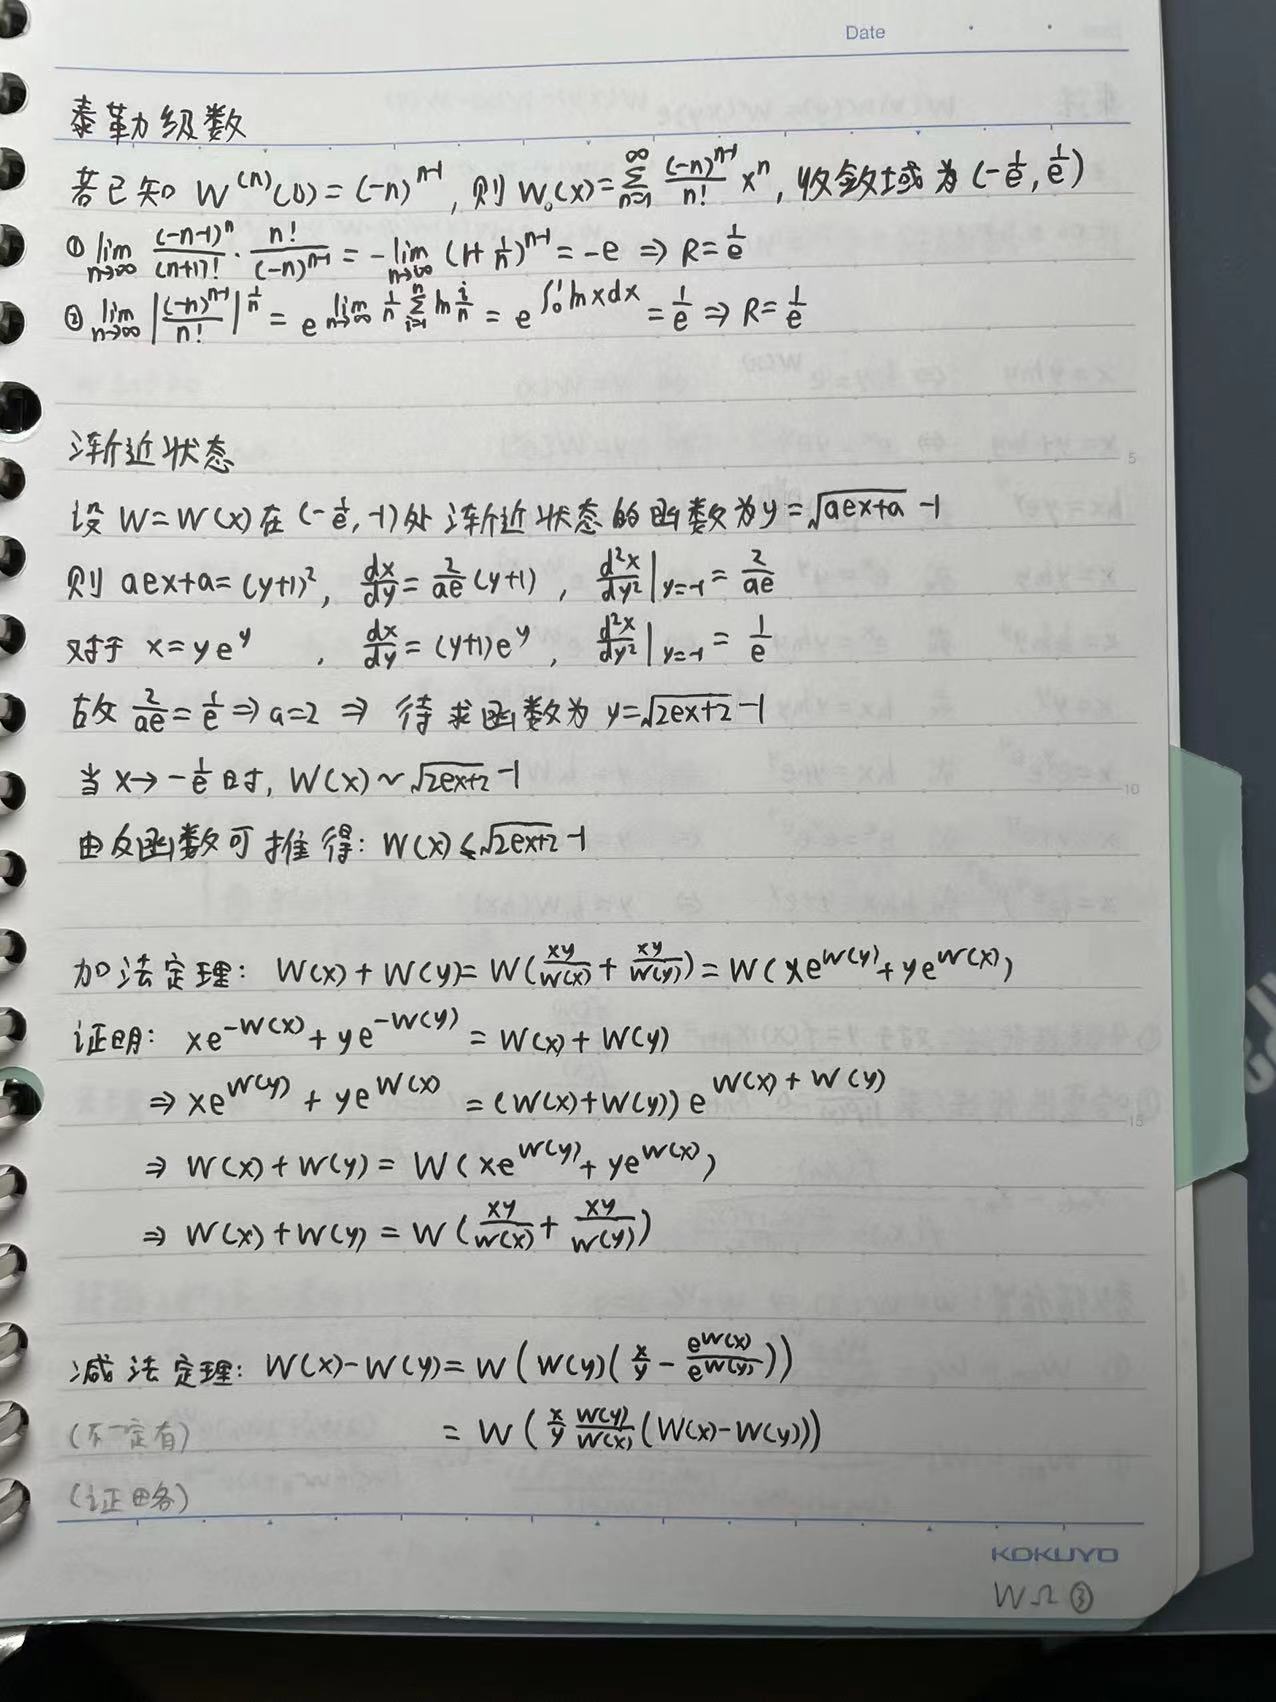 Date
泰勒级数
若已知 W⁽ⁿ⁾(0)=(-n)ⁿ⁻¹, 则 W₀(x)=∑_{n=1}^{∞} (-n)ⁿ⁻¹/n! xⁿ, 收敛域为(-1/e, 1/e)
① lim_{n→∞} (-n-1)ⁿ/(n+1)! · n!/(-n)ⁿ⁻¹ = -lim_{n→∞} (1+1/n)ⁿ⁻¹ = -e ⇒ R=1/e
② lim_{n→∞} |(-n)ⁿ⁻¹/n!|^{1/n} = e^{lim_{n→∞} 1/n ∑_{i=1}^{n} ln i/n} = e^{∫₀¹ lnxdx} = 1/e ⇒ R=1/e
渐近状态
设 W=W(x)在(-1/e, -1)处渐近状态的函数为y=√(aex+a) -1
则 aex+a=(y+1)², dx/dy=2/ae (y+1), d²x/dy²|_{y=-1}=2/ae
对于 x=yeʸ , dx/dy=(y+1)eʸ, d²x/dy²|_{y=-1}=1/e
故 2/ae=1/e ⇒ a=2 ⇒ 待求函数为 y=√(2ex+2) -1
当 x→-1/e时, W(x)~√(2ex+2) -1
由反函数可推得: W(x)≤√(2ex+2) -1
加法定理: W(x)+W(y)=W(xy/W(x)+xy/W(y))=W(xe^{W(y)}+ye^{W(x)})
证明: xe^{-W(x)}+ye^{-W(y)}=W(x)+W(y)
⇒ xe^{W(y)}+ye^{W(x)}=(W(x)+W(y))e^{W(x)+W(y)}
⇒ W(x)+W(y)=W(xe^{W(y)}+ye^{W(x)})
⇒ W(x)+W(y)=W(xy/W(x)+xy/W(y))
减法定理: W(x)-W(y)=W(W(y)(x/y-e^{W(x)}/e^{W(y)}))
(不一定有) =W(x/y W(y)/W(x)(W(x)-W(y)))
(证略)
KOKUYO
WΩ③
5
10
15